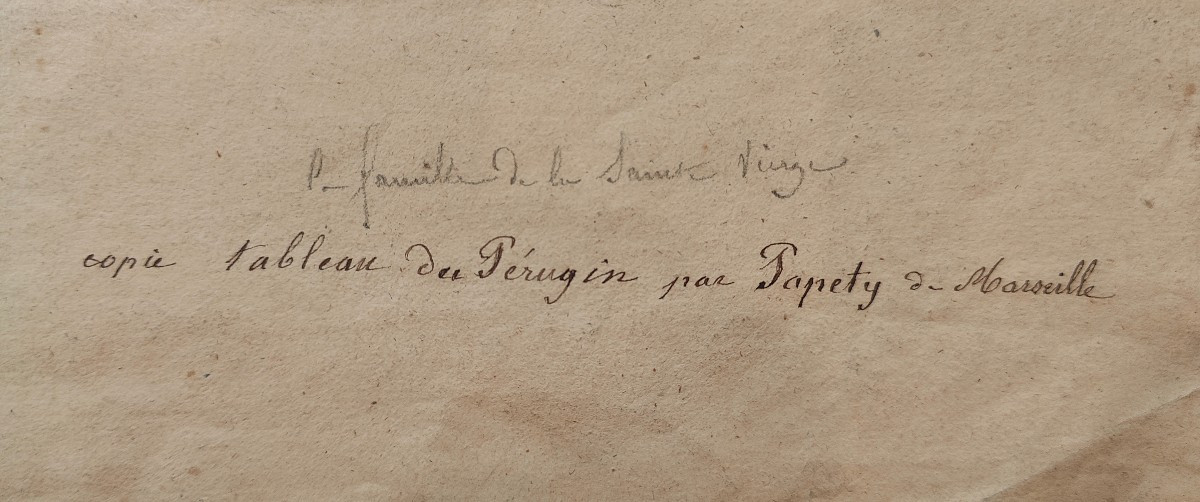 famille de la Sainte Vierge
copie tableau du Pérugin par Papety de Marseille